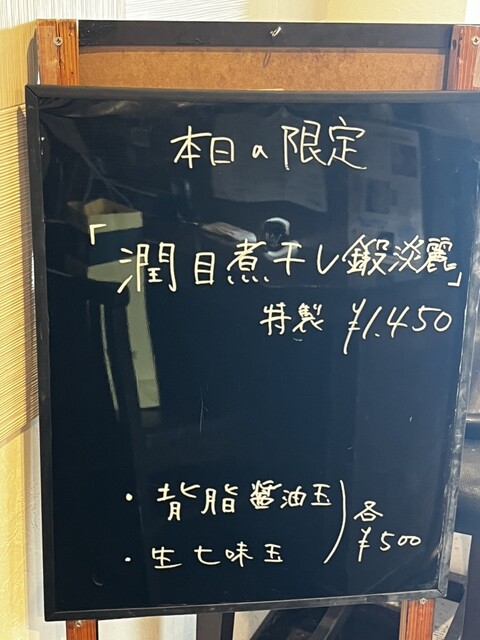 本日の限定
「潤目煮干し鍛淡麗」
特製 ¥1.450
・背脂醤油玉
・生七味玉
各
¥500